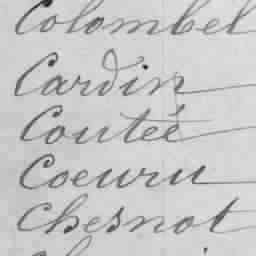 Colombel
Cardin
Coutée
Coeuru
Chesnot